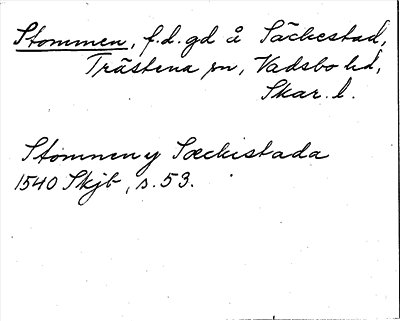 Stommen, f.d. gd å Säckestad,
Trästena sn, Vadsbo hd,
Skar. l.
Stommen y Sæckistada
1540 Skjb, s. 53.